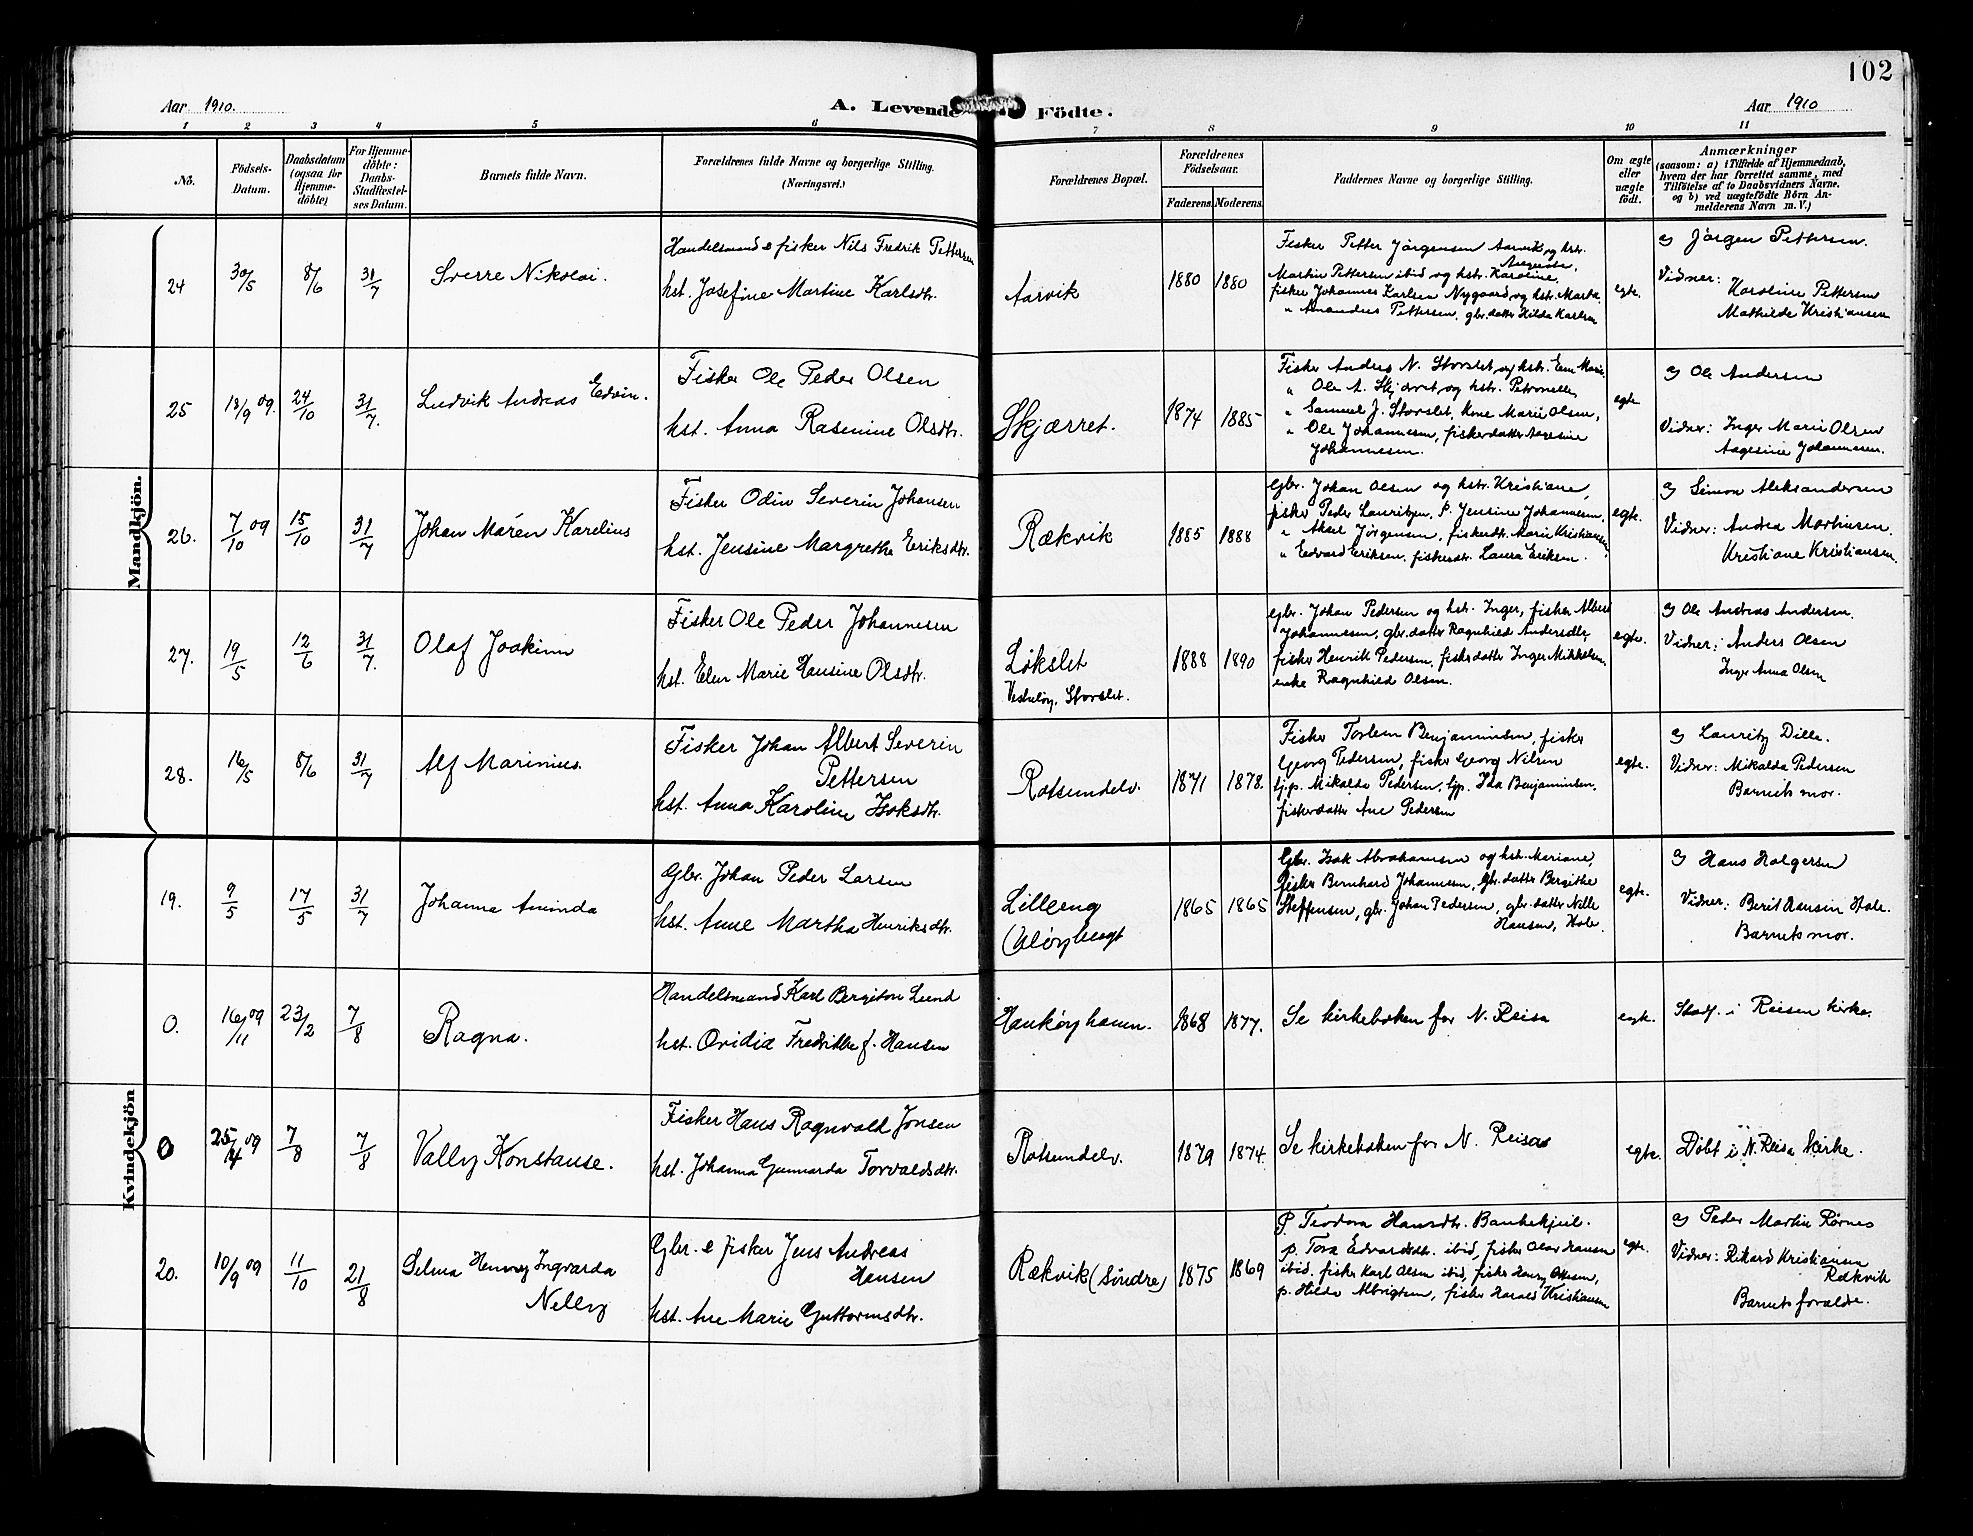 102
Aar 1910.
A. Levende Födte.
Aar 1910
1 2 3 4 5 6 7 8 9 10 11
No.
Födsels-
Datum.
Daabsdatum
(ogsaa for
Hjemme-
döbte)
For Hjemme-
döbte:
Daabs-
Stadfæstel-
ses Datum.
Barnets fulde Navn.
Forældrenes fulde Navne og borgerlige Stilling.
(Næringsvei.)
Forældrenes Bopæl.
Forældrenes
Födselsaar.
Faderens.
Moderens.
Faddernes Navne og borgerlige Stilling.
Om ægte
eller
uægte
födt.
Anmærkninger
(saasom: a) i Tilfælde af Hjemmedaab,
hvem der har forrettet samme, med
Tilföielse af to Daabsvidners Navne.
og b) ved uægtefödte Börn An-
melderens Navn m. V.)
Mandkjön.
24
30/5
8/6
31/7
Sverre Nikolai.
Handelsmand & fisker Nils Fredrik Pettersen
hst. Josefine Martine Karlsdtr.
Aarvik
1880
1880
Fisker Petter Jørgensen Aarvik og hstr.
Auguste,
Martin Pettersen ibid og hstr. Karoline,
fisker Johannes Karlsen Nygaard og hstr. Marta
" Amandus Pettersen, gbr.datter Hilda Karlsen
egte.
a) Jørgen Pettersen.
Vidner: Karoline Pettersen
Mathilde Kristiansen
25
18/9 09.
24/10
31/7.
Ludvik Andreas Edvin.
Fisker Ole Peder Olsen
hst. Anna Rasmine Olsdtr.
Skjærret.
1874
1885
Fisker Anders N. Storslet og hstr. Elen Marie
" Ole A. Skjæret og hstr. Petronelle
" Samuel J. Storslet, kone Marie Olsen,
" Ole Johannesen, fiskerdatter
Johannesen.
egte
a) Ole Andersen
Vidner: Inger Marie Olsen
Aagesine Johannesen.
26.
7/10 09
15/10
31/7
Johan Marén Karelius
Fisker Odin Severin Johansen
hst. Jensine Margrethe Eriksdtr.
Rækvik
1885
1888
gbr. Johan Olsen og hstr. Kristiane,
fisker Peder Lauritzen, p. Jensine Johannesen,
" Aksel Jørgensen, fiskerdtr. Marie Kristiansen,
" Edvard Eriksen, fiskerdtr. Laura Eriksen.
egte.
a) Simon Aleksandersen
Vidner: Andrea Martinsen.
Kristiane Kristiansen.
27.
19/5
12/6
31/7.
Olaf Joakim
Fisker Ole Peder Johannesen
hst. Elen Marie Hansine Olsdtr.
Løkslet
Storslet.
1888
1890
gbr. Johan Pedersen og hst. Inger, fisker Albert
Johannesen, gbr.datter Ragnhild Andersdtr,
fisker Henrik Pedersen, fiskerdatter Inger Mikkelsen,
enke Ragnhild Olsen.
egte.
a) Ole Andreas Andersen.
Vidner: Anders Olsen
Inger Anna Olsen
28.
16/5
8/6
31/7
Alf Marinius.
Fisker Johan Albert Severin
Pettersen
hst. Anna Karoline Isaksdtr.
Rotsundelv.
1871
1878.
Fisker Torlem Benjaminsen, fisker
Georg Pedersen, fisker Georg Nilsen
tj.p. Mikalda Pedersen, tjp. Ida Benjaminsen,
fiskerdatter Ane Pedersen
egte.
a) Lauritz Dille.
Vidner: Mikalda Pedersen
Barnets mor.
Kvindekjön
19.
9/5
17/5
31/7
Johanna Aminda
Gbr. Johan Peder Larsen
hst. Anne Martha Henriksdtr.
Lilleeng
(Uløybugt
1865
1865
Gbr. Isak Abrahamsen og hstr. Mariane,
fisker Bernhard Johannesen, gbr.datter Bergithe
Steffensen, gbr. Johan Pedersen, gbr.datter Nille
Hansen, Hole.
egte.
a) Hans Holgersen
Vidner: Berit Hansen Hole.
Barnets mor.
0.
16/11 09
23/2
7/8
Ragna.
Handelsmand Karl Bergiton Lund
hst. Ovidia Fredrikke f. Hansen
Haukøyhavn.
1868
1877.
Se kirkeboken for N. Reisa
egte.
Stadf. i Reisen kirke.
0
25/4 09
7/8
7/8
Vally Konstanse.
Fisker Hans Ragnvald Jonsen
hst. Johanna Gunnarda Torvaldsdtr.
Rotsundelv.
1879
1874.
Se kirkeboken for N. Reisa
egte.
Døbt i N. Reisa kirke.
20.
10/9 09
11/10
21/8
Selma Henny Ingvarda
Nelly
Gbr. & fisker Jens Andreas
Hansen
hst. Ane Marie Guttormsdtr.
Rækvik (Söndre)
1875
1869
P. Teodora Hansdtr. Bankekjeil.
p. Tora Edvardsdtr. ibid, fisker Olav Hansen
ibid. fisker Karl Olsen ibid, fisker Henry Olsen,
p. Hilda Albrigtsen, fisker Harald Kristiansen
egte.
a) Peder Martin Rørnes
Vidner: Rikard Kristiansen
Rækvik
Barnets forældre.